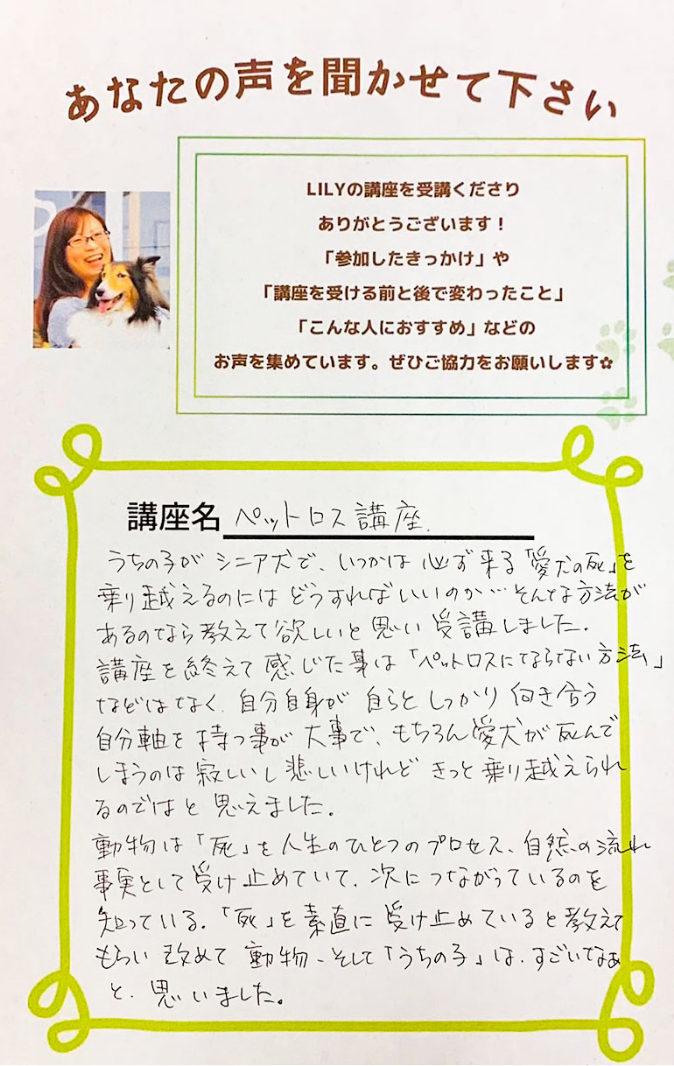 あなたの声を聞かせて下さい
LILYの講座を受講くださり
ありがとうございます！
「参加したきっかけ」や
「講座を受ける前と後で変わったこと」
「こんな人におすすめ」などの
お声を集めています。ぜひご協力をお願いします✿
講座名 ペットロス講座.
うちの子がシニア犬で、いつかは必ず来る「愛犬の死」を
乗り越えるのにはどうすればいいのか…そんな方法が
あるのなら教えて欲しいと思い受講しました.
講座を終えて感じた事は「ペットロスにならない方法」
などはなく、自分自身が自らとしっかり向き合う
自分軸を持つ事が大事で、もちろん愛犬が死んで
しまうのは寂しいし悲しいけれどきっと乗り越えられ
るのではと思えました.
動物は「死」を人生のひとつのプロセス、自然の流れ
事実として受け止めていて、次につながっているのを
知っている.「死」を素直に受け止めていると教えて
もらい改めて動物、そして「うちの子」は、すごいなぁ
と、思いました。